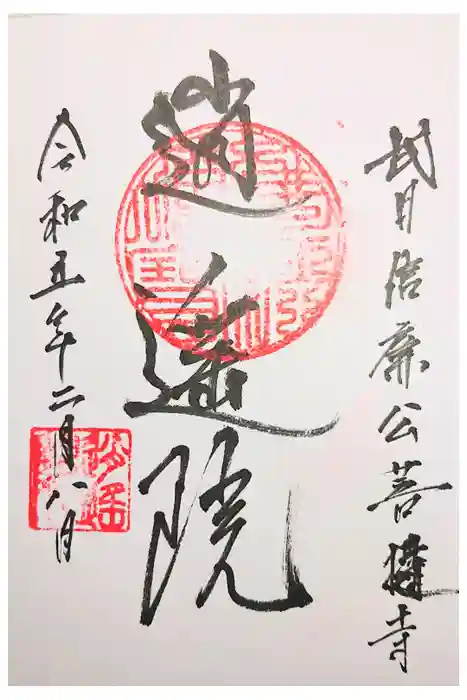 武田信廉公菩提寺
逍遥院
令和五年二月八日
逍遥